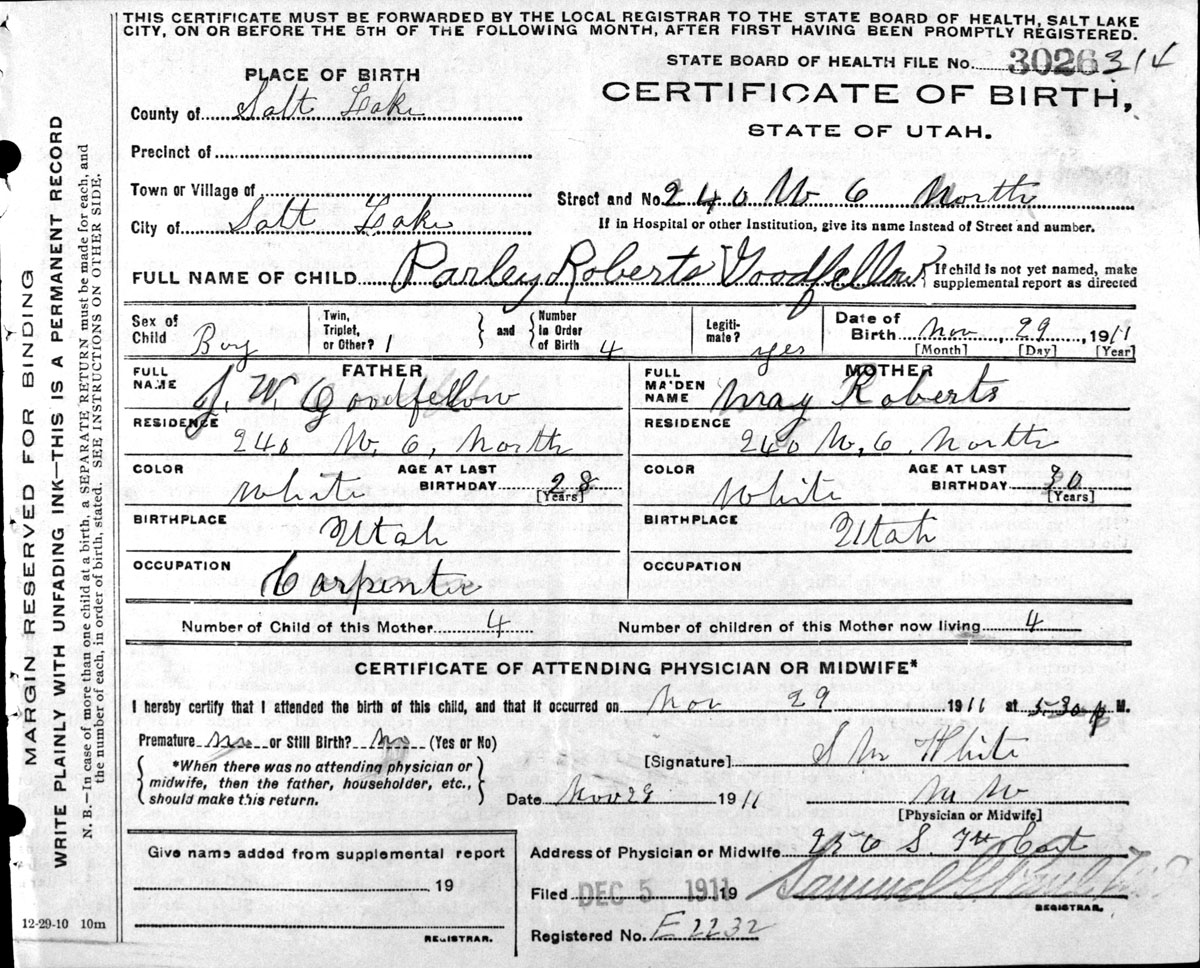 THIS CERTIFICATE MUST BE FORWARDED BY THE LOCAL REGISTRAR TO THE STATE BOARD OF HEALTH, SALT LAKE
CITY, ON OR BEFORE THE 5TH OF THE FOLLOWING MONTH, AFTER FIRST HAVING BEEN PROMPTLY REGISTERED.
STATE BOARD OF HEALTH FILE No. 3026 314
PLACE OF BIRTH
CERTIFICATE OF BIRTH,
STATE OF UTAH.
County of Salt Lake
Precinct of
Town or Village of
Street and No. 240 W 6 North
City of Salt Lake
If in Hospital or other Institution, give its name instead of Street and number.
FULL NAME OF CHILD Parley Roberts Goodfellow { If child is not yet named, make
supplemental report as directed
Sex of Child Boy
Twin, Triplet, or Other? 1
and
Number in Order of Birth 4
Legiti-mate? yes
Date of Birth Nov, 29, 1911
[Month] [Day] [Year]
FATHER
FULL NAME J. W. Goodfellow
RESIDENCE
240 W. 6, North
COLOR White AGE AT LAST BIRTHDAY 28
[Years]
BIRTHPLACE
Utah
OCCUPATION
Carpenter
MOTHER
FULL MAIDEN NAME May Roberts
RESIDENCE
240 W. 6. North
COLOR White AGE AT LAST BIRTHDAY 30
[Years]
BIRTHPLACE
Utah
OCCUPATION
Number of Child of this Mother 4 Number of children of this Mother now living 4
CERTIFICATE OF ATTENDING PHYSICIAN OR MIDWIFE*
I hereby certify that I attended the birth of this child, and that it occurred on Nov 29 1911 at 5.30 p M.
Premature no or Still Birth? No (Yes or No)
*When there was no attending physician or
midwife, then the father, householder, etc.,
should make this return.
[Signature] S M White
Date Nov 29 1911
[Physician or Midwife]
Give name added from supplemental report
19
REGISTRAR.
Address of Physician or Midwife S East
Filed DEC 5 1911 19 Samuel G.
REGISTRAR.
Registered No. E 2232
12-29-10 10m
MARGIN RESERVED FOR BINDING
WRITE PLAINLY WITH UNFADING INK—THIS IS A PERMANENT RECORD
N. B.—In case of more than one child at a birth, a SEPARATE RETURN must be made for each, and
the number of each, in order of birth, stated. SEE INSTRUCTIONS ON OTHER SIDE.